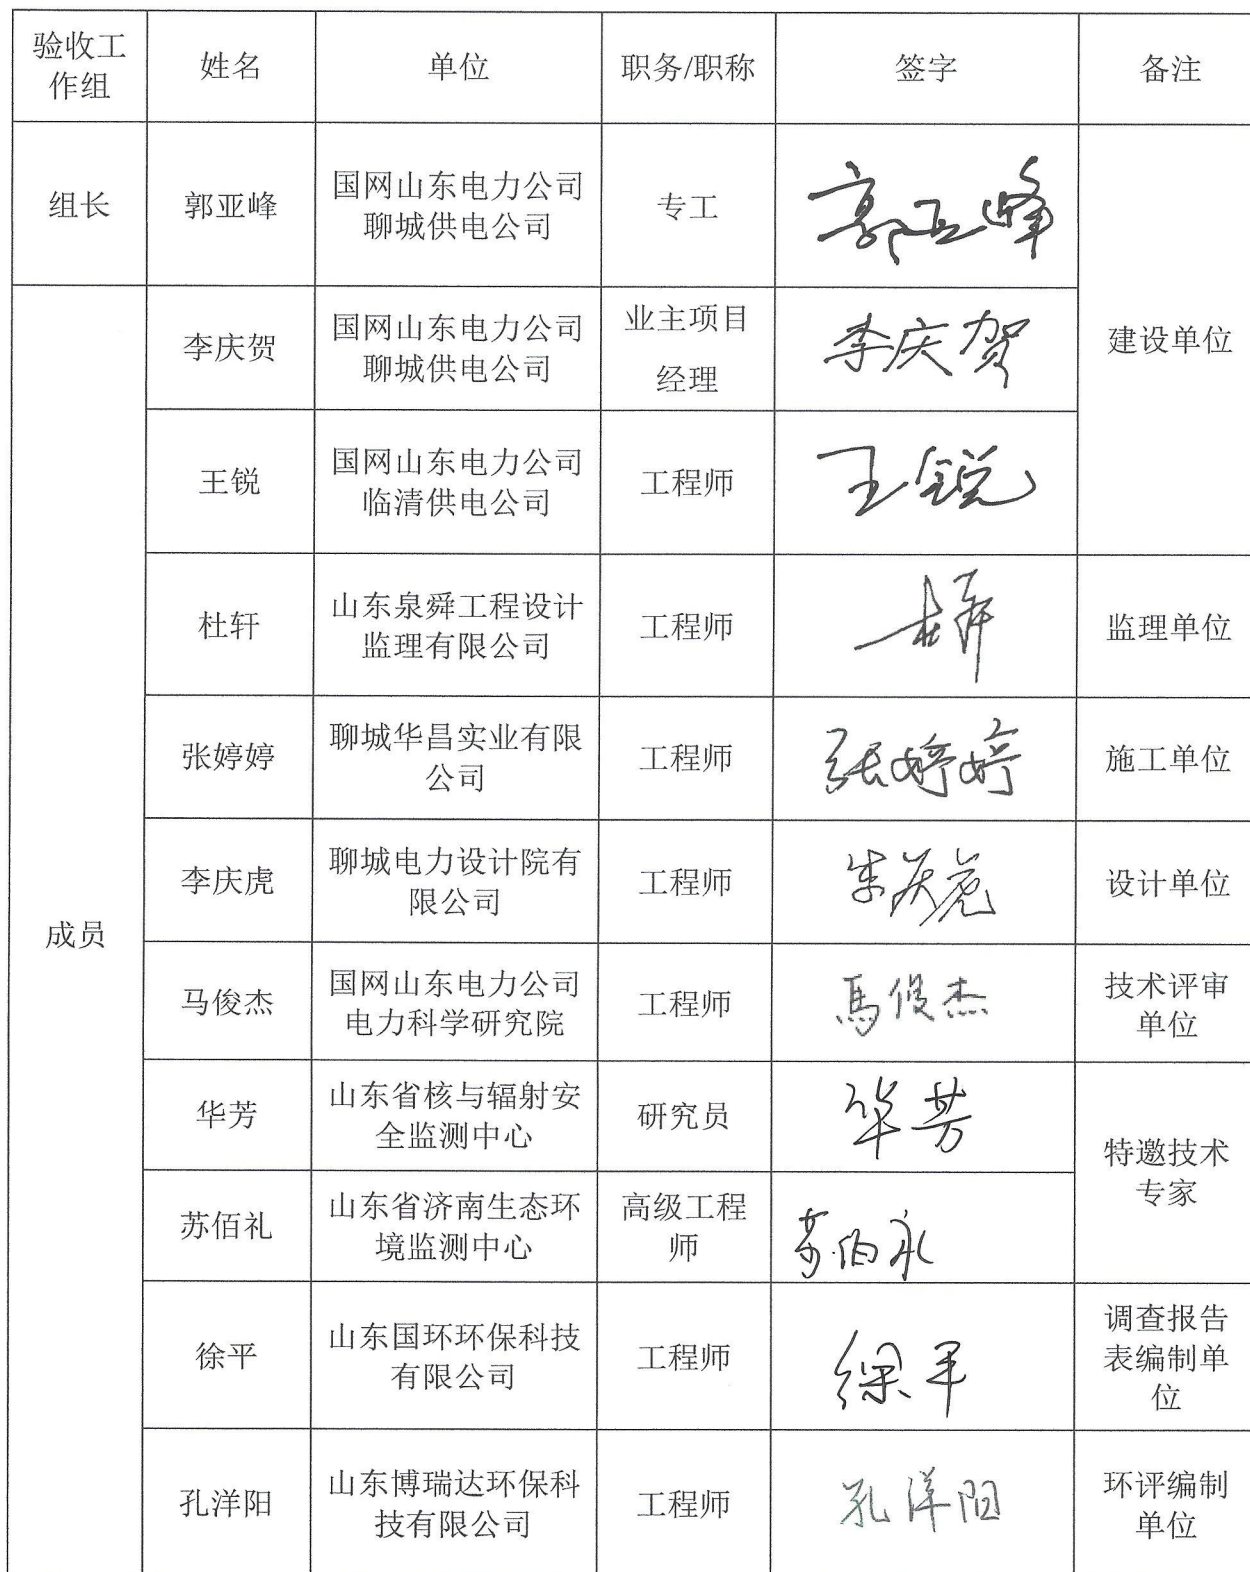 验收工
作组
姓名
单位
职务/职称
签字
备注
组长
郭亚峰
国网山东电力公司
聊城供电公司
专工
郭亚峰
建设单位
成员
李庆贺
国网山东电力公司
聊城供电公司
业主项目
经理
李庆贺
王锐
国网山东电力公司
临清供电公司
工程师
王锐
杜轩
山东泉舜工程设计
监理有限公司
工程师
杜轩
监理单位
张婷婷
聊城华昌实业有限
公司
工程师
张婷婷
施工单位
李庆虎
聊城电力设计院有
限公司
工程师
李庆虎
设计单位
马俊杰
国网山东电力公司
电力科学研究院
工程师
馬俊杰
技术评审
单位
华芳
山东省核与辐射安
全监测中心
研究员
华芳
特邀技术
专家
苏佰礼
山东省济南生态环
境监测中心
高级工程
师
徐平
山东国环环保科技
有限公司
工程师
徐平
调查报告
表编制单
位
孔洋阳
山东博瑞达环保科
技有限公司
工程师
孔洋阳
环评编制
单位